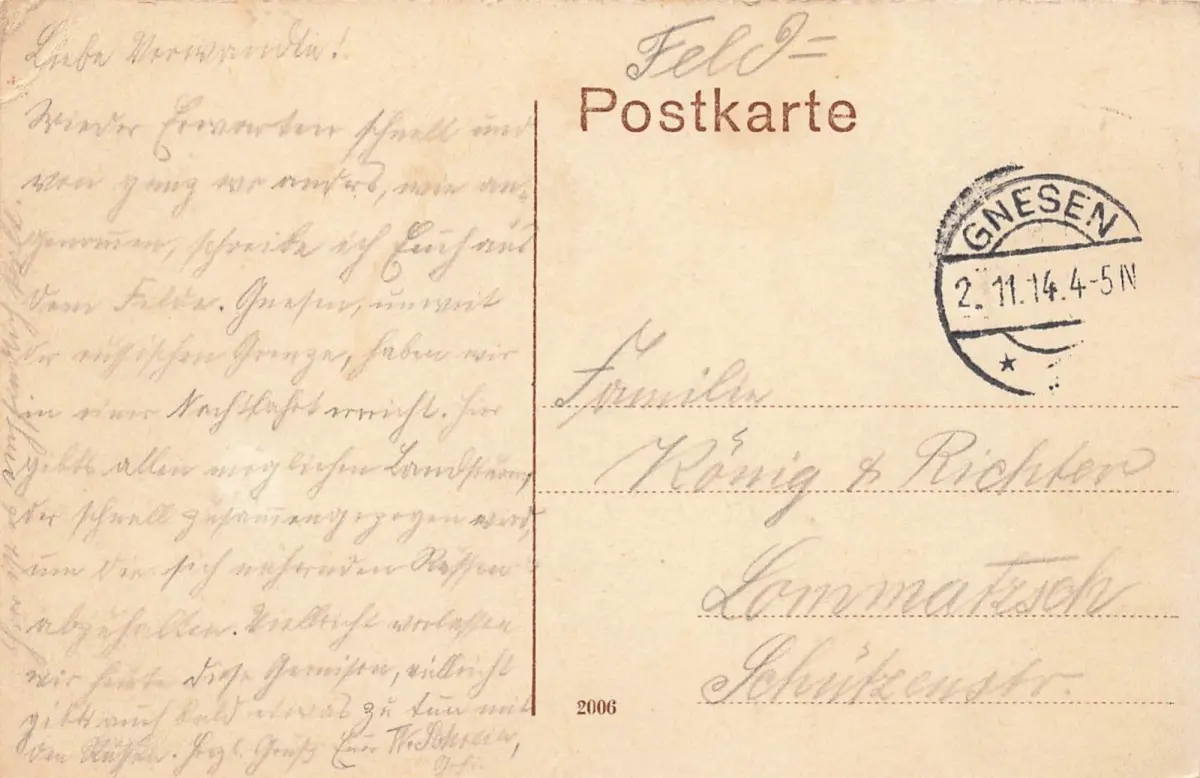 Liebe Verwandte!
Wieder Erwarten schnell und
von ganz wo anders, wie an-
genommen, schreibe ich Euch aus
dem Felde. Gnesen, unweit
der russischen Grenze, haben wir
in einer Nachtfahrt erreicht. Hier
gibts allen möglichen Landsturm,
der schnell zusammengezogen wird,
um die sich nähernden Russen
abzuhalten. Vielleicht verlassen
wir heute diese Garnison, vielleicht
gibts auch bald etwas zu tun mit
den Russen. Herzl. Grüße Euer
Feld=
Postkarte
GNESEN
2.11.14.4-5N
Familie
König & Richter
Lommatzsch
Schützenstr.
2006